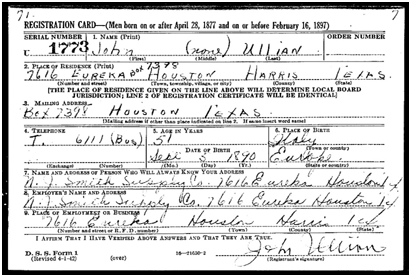 71 7
REGISTRATION CARD—(Men born on or after April 28, 1877 and on or before February 16, 1897)
SERIAL NUMBER 1. NAME (Print) ORDER NUMBER
U 1773 John (none) Ullian
(First) (Middle) (Last)
2. PLACE OF RESIDENCE (Print) Box 7398
7616 Eureka Houston Harris Texas.
(Number and street) (Town, township, village, or city) (County) (State)
[THE PLACE OF RESIDENCE GIVEN ON THE LINE ABOVE WILL DETERMINE LOCAL BOARD
JURISDICTION; LINE 2 OF REGISTRATION CERTIFICATE WILL BE IDENTICAL]
3. MAILING ADDRESS
Box 7398 Houston Texas.
[Mailing address if other than place indicated on line 2. If same insert word same]
4. TELEPHONE 5. AGE IN YEARS 6. PLACE OF BIRTH
T. 6111 (Bus) 51 Italy
DATE OF BIRTH (Town or county)
Sept 5 1890 Europe
(Exchange) (Number) (Mo.) (Day) (Yr.) (State or country)
7. NAME AND ADDRESS OF PERSON WHO WILL ALWAYS KNOW YOUR ADDRESS
Smith Supply Co. 7616 Eureka Houston
8. EMPLOYER'S NAME AND ADDRESS
Smith Supply Co. 7616 Eureka Houston
9. PLACE OF EMPLOYMENT OR BUSINESS
7616 Eureka Houston Harris
(Number and street or R. F. D. number) (Town) (County) (State)
I AFFIRM THAT I HAVE VERIFIED ABOVE ANSWERS AND THAT THEY ARE TRUE.
John Ullian
D. S. S. Form 1
(Revised 4-1-42) (over) (Registrant's signature)